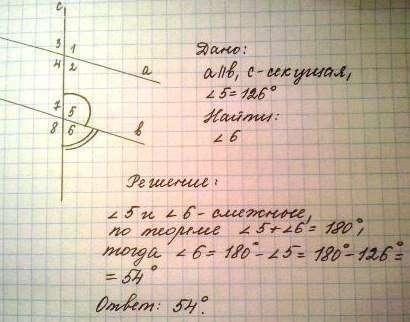 c
3 1
4 2
a
7 5
8 6
в
Дано:
a∥b, c-секущая,
∠5=126°
Найти:
∠6
Решение:
∠5 и ∠6 - смежные,
по теореме ∠5+∠6=180°,
тогда ∠6=180°-∠5=180°-126°=
=54°
Ответ: 54°.